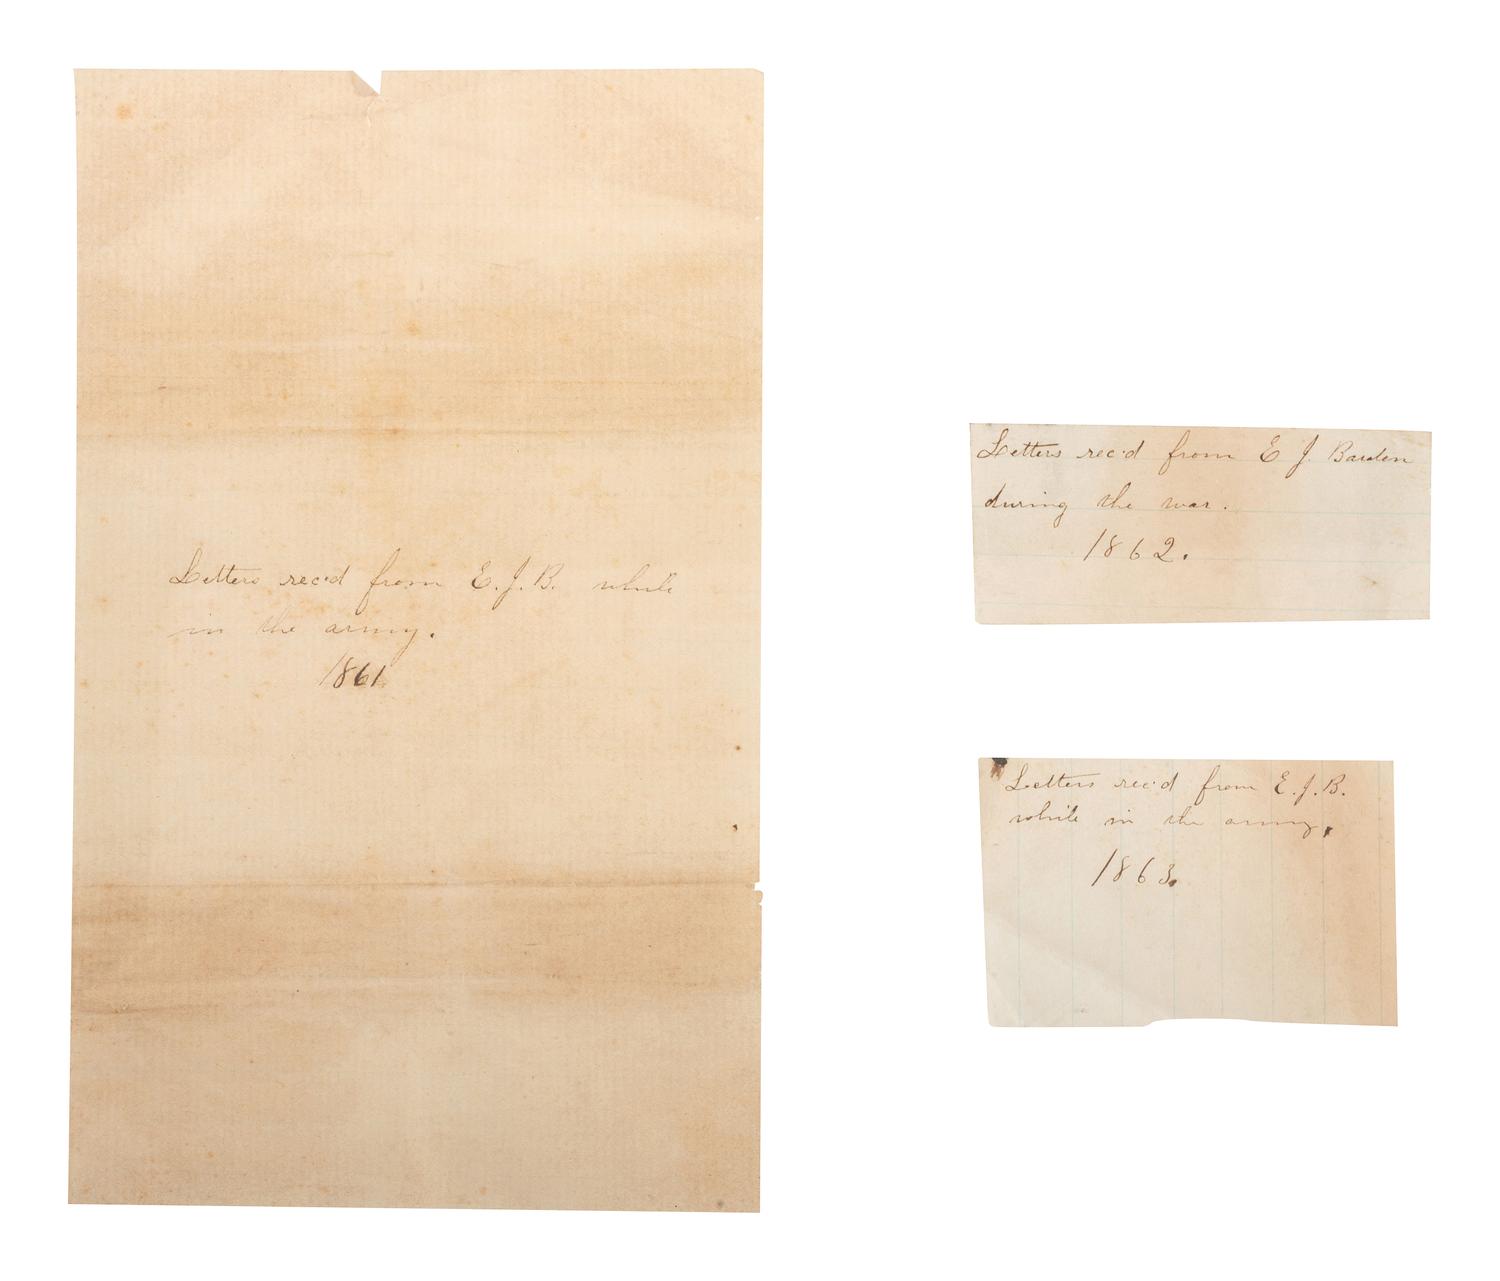 Letters rec'd from E. J. B. while
in the army.
1861
Letters rec'd from E J. Barden
during the war.
1862.
Letters rec'd from E. J. B.
while in the army.
1863.